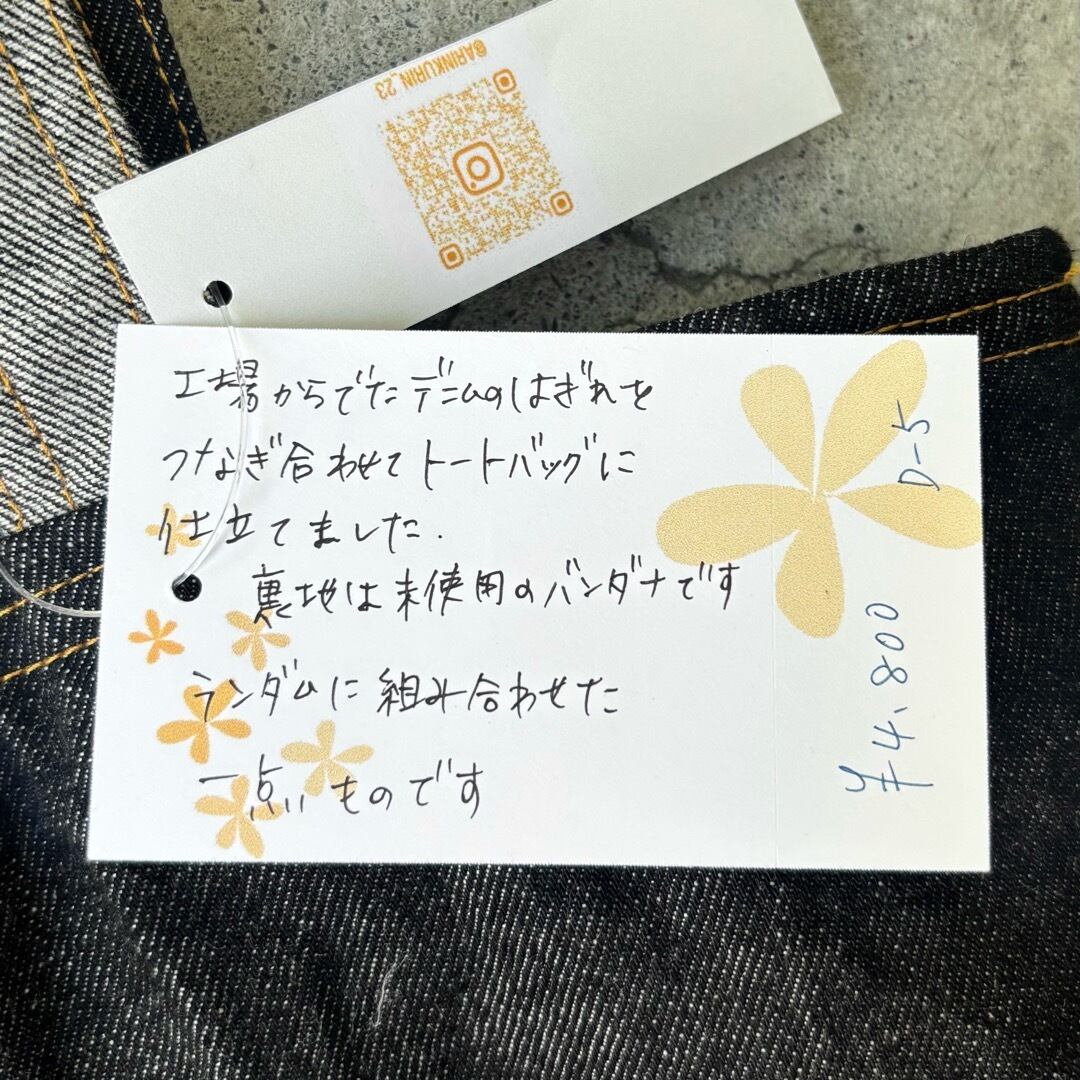 @ARINKURIN_23
工場からでたデニムのはぎれを
つなぎ合わせてトートバッグに
仕立てました.
裏地は未使用のバンダナです
ランダムに組み合わせた
一点ものです
D-5
¥4,800